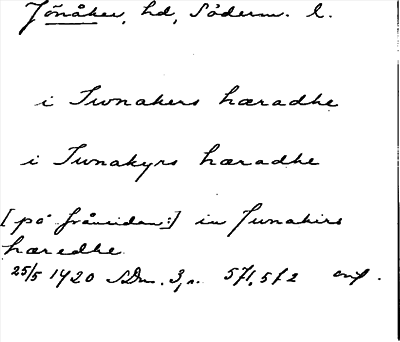 Jönåker, hd, Söderm. l.
i Iwnakers hæradhe
i Iwnakyrs hæradhe
[på frånsidan:] in Junakirs
hæredhe
25/5 1420 SDm. 3, s. 571, 572